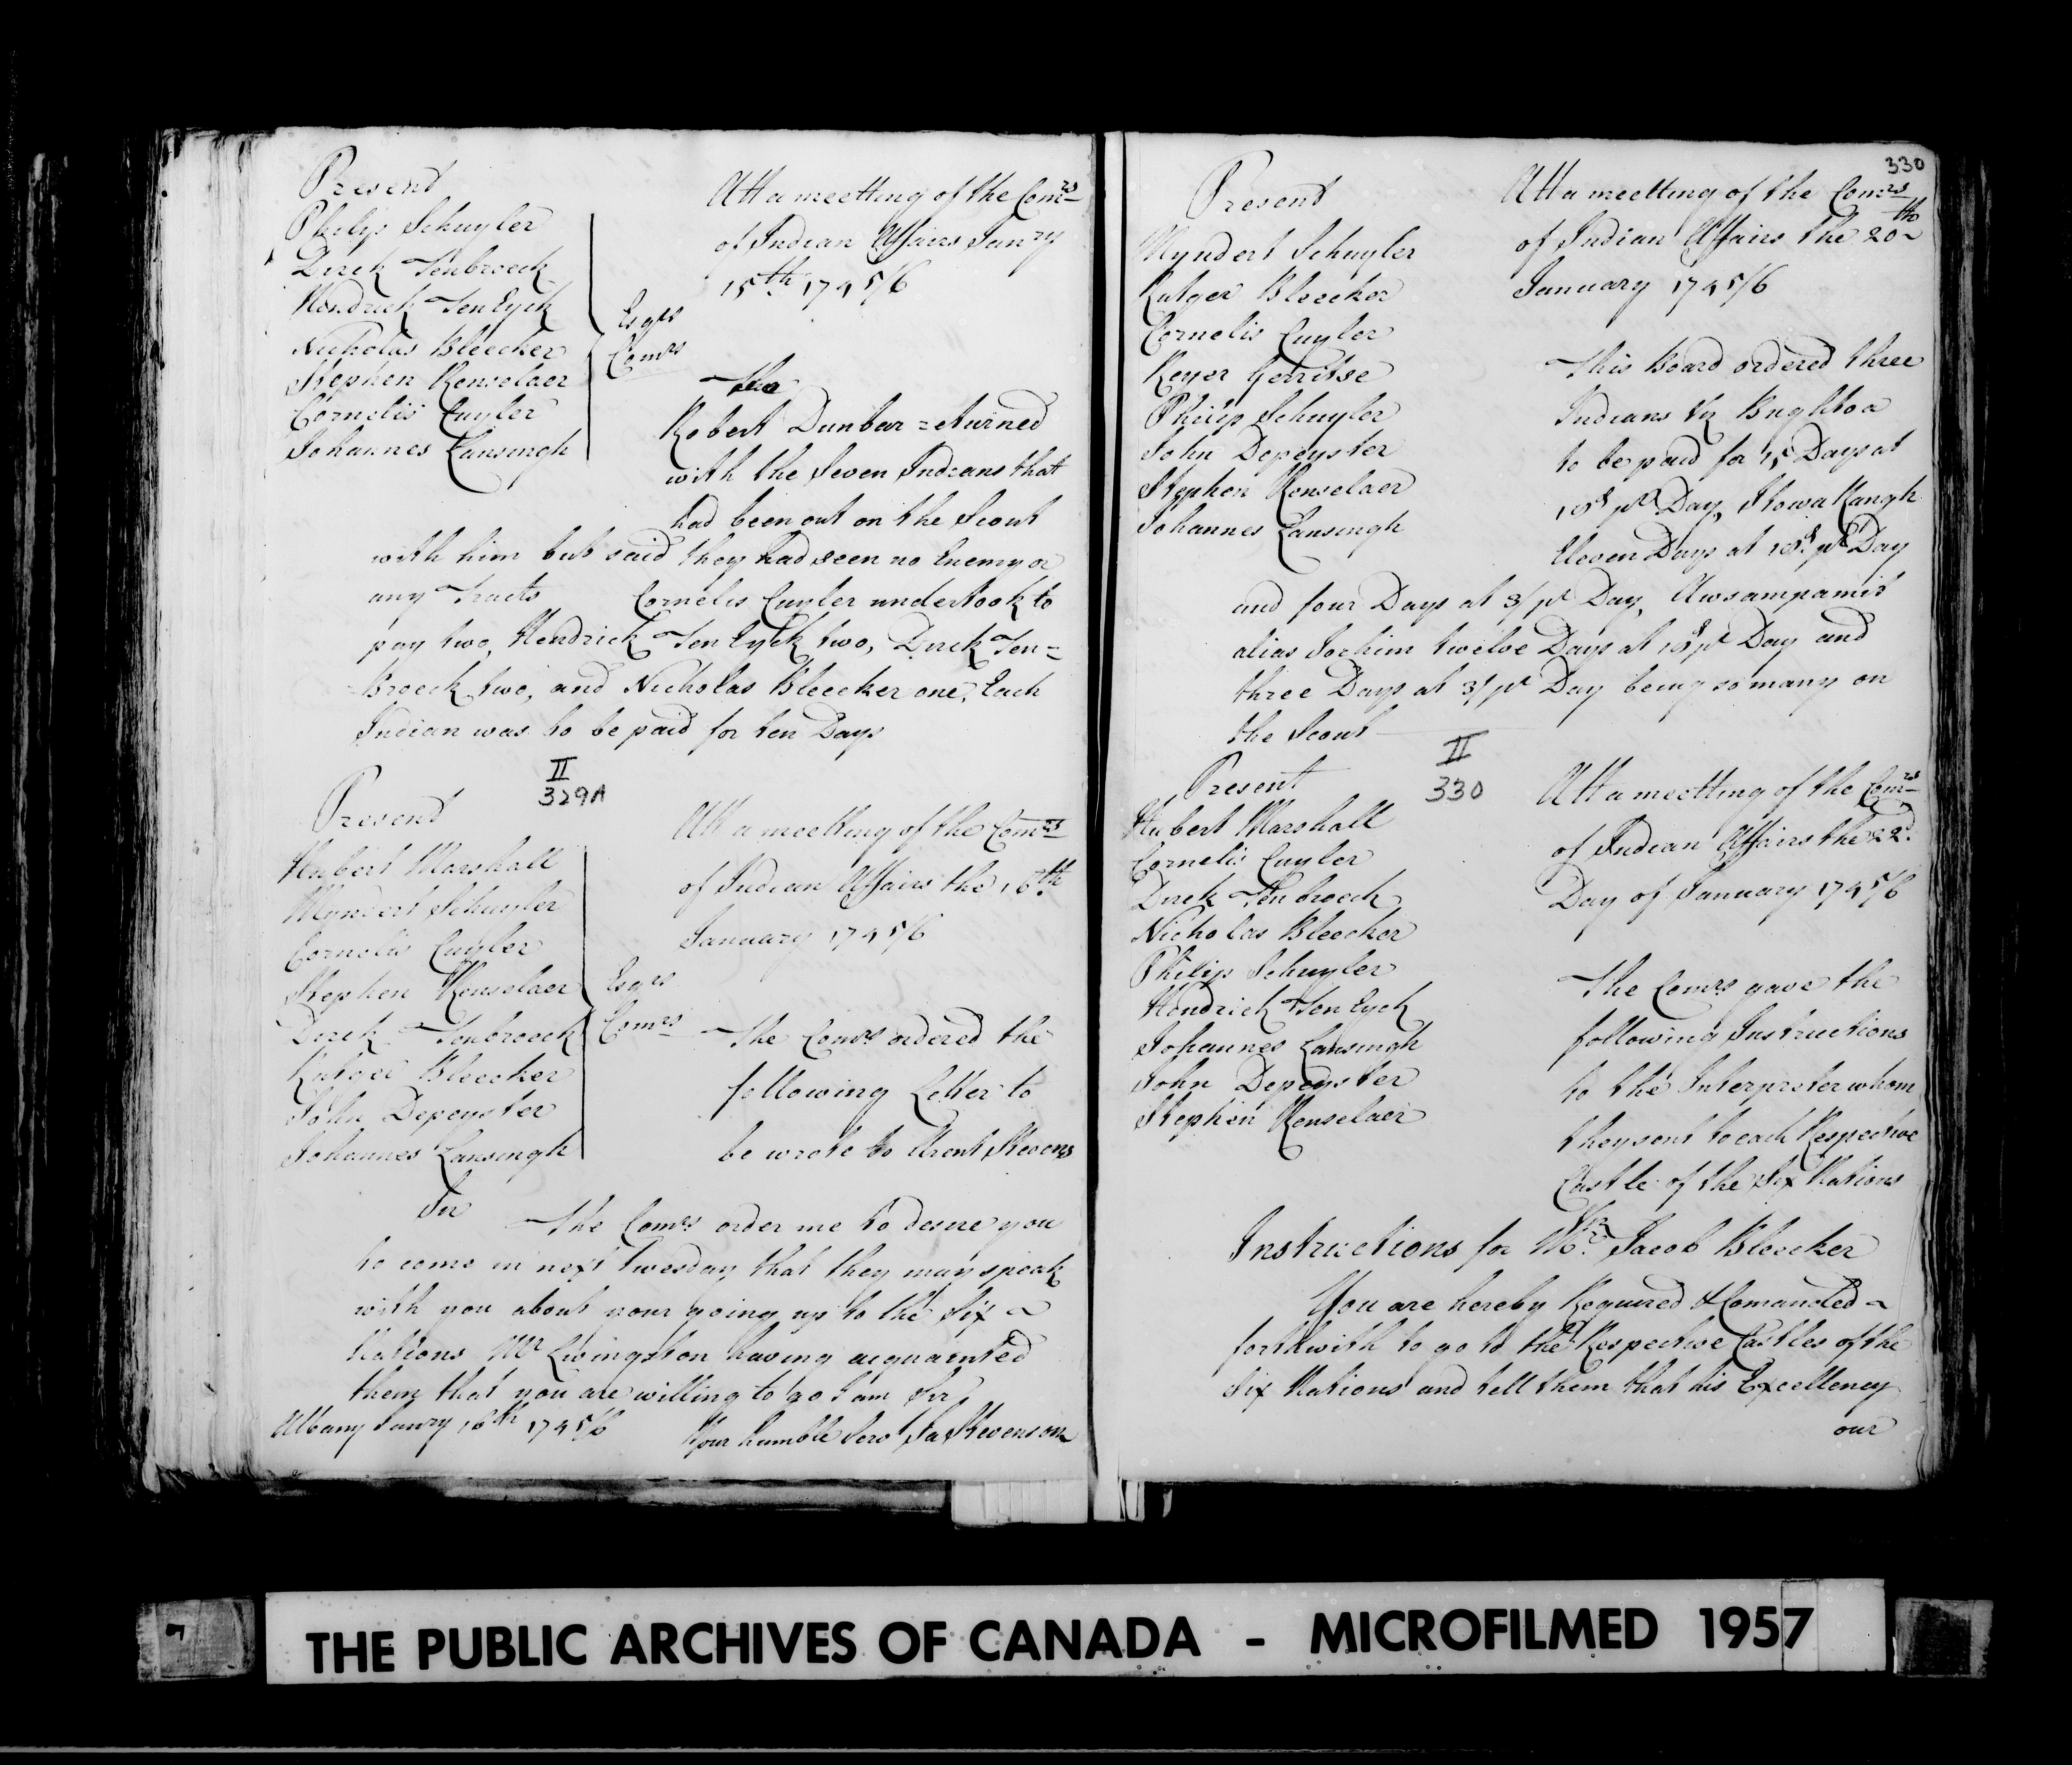 Present
Philip Schuyler
Dirck Tenbroeck
Hendrick Ten Eyck
Nicholas Bleecker
Stephen Renselaer
Cornelis Cuyler
Johannes Lansingh
Esqrs
Comrs
Att a meetting of the Comrs
of Indian Affairs Janry
15th 1745/6
The
Robert Dunbar returned
with the Seven Indians that
had been out on the Scout
with him but said they had seen no Enemy or
any Tracts Cornelis Cuyler undertook to
pay two, Hendrick Ten Eyck two, Dirck Ten=
Broeck two, and Nicholas Bleecker one, Each
Indian was to be paid for ten Days
II
329A
Present
Hubert Marshall
Myndert Schuyler
Cornelis Cuyler
Stephen Renselaer
Dirck Tenbroeck
Rutger Bleecker
John Depeyster
Johannes Lansingh
Esqrs
Comrs
Att a meetting of the Comrs
of Indian Affairs the 16th
January 1745/6
The Comrs ordered the
following Letter to
be wrote to Arent Stevens
Sir
The Comrs order me to desire you
to come in next Twesday that they may speak
with you about your going up to the Six
Nations Mr Livingston having acquainted
them that you are willing to go I am Sir
Albany Janry 16th 1745/6 Your humble Servt Ja Stevenson
330
Present
Myndert Schuyler
Rutger Bleecker
Cornelis Cuyler
Reyer Gerritse
Philip Schuyler
John Depeyster
Stephen Renselaer
Johannes Lansingh
Att a meetting of the Comrs
of Indian Affairs the 20th
January 1745/6
This Board ordered three
Indians Viz
to be paid for 15 Days at
pr Day,
Eleven Days at pr Day
and four Days at 3/ pr Day, Awsampamit
alias Jochim twelve Days at pr Day and
three Days at 3/ pr Day being so many on
the Scout
II
330
Present
Hubert Marshall
Cornelis Cuyler
Dirck Tenbroeck
Nicholas Bleecker
Philip Schuyler
Hendrick Ten Eyck
Johannes Lansingh
John Depeyster
Stephen Renselaer
Att a meetting of the Comrs
of Indian Affairs the 22d
Day of January 1745/6
The Comrs gave the
following Instructions
to the Interpreter whom
they sent to each Respective
Castle of the Six Nations
Instructions for Mr Jacob Bleecker
You are hereby Required & Comanded
forthwith to go to the Respective Castles of the
Six Nations and tell them that his Excellency
our
THE PUBLIC ARCHIVES OF CANADA - MICROFILMED 1957